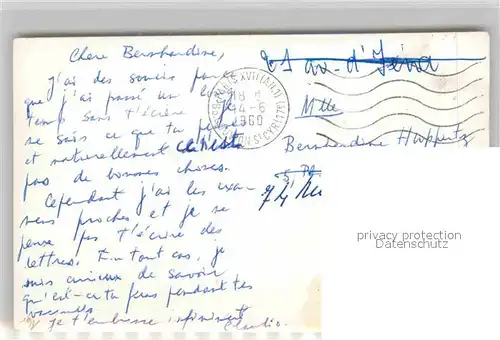 Chere Bernhardine,
J'ai des soucis parce
que j'ai passé un
temps sans t'écrire
je sais ce que tu
et naturellement ce n'est
pas de bonnes choses.
Cependant j'ai les exa-
mens proches et je ne
pense pas t'écrire des
lettres. En tout cas, je
suis curieux de savoir
qu'est-ce tu feras pendant tes
vacances
je t'embrasse infiniment
Claudio.
21 av. d'Iéna
Mlle
Bernhardine Huppertz
PARIS XVII
18 H
14-6
1960
privacy protection
Datenschutz